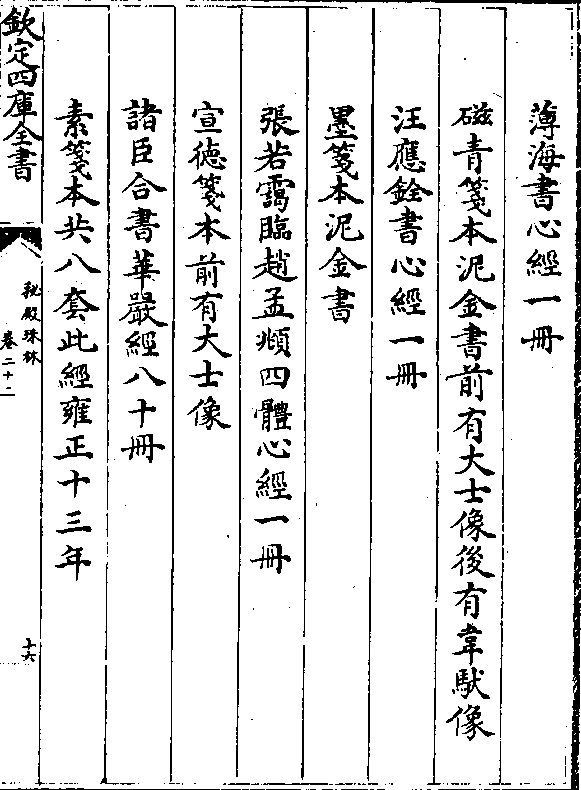 薄海書心經一冊
磁青箋本泥金書前有大士像後有韋馱像
汪應銓書心經一冊
墨箋本泥金書
張若靄臨趙孟頫四體心經一冊
宣徳箋本前有大士像
諸臣合書華嚴經八十冊
素箋本共八套此經雍正十三年
欽定四庫全書
秘殿珠林
卷二十二
十六